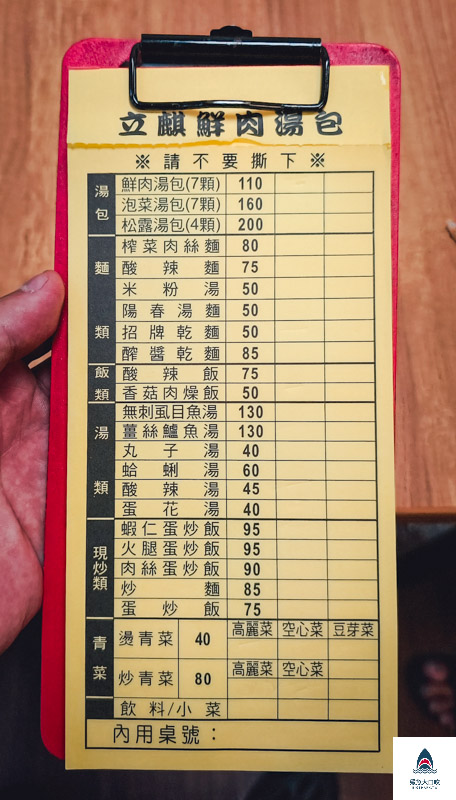 立麒鮮肉湯包
※請不要撕下※
湯包
鮮肉湯包(7顆) 110
泡菜湯包(7顆) 160
松露湯包(4顆) 200
麵類
榨菜肉絲麵 80
酸辣麵 75
米粉湯 50
陽春湯麵 50
招牌乾麵 50
醡醬乾麵 85
飯類
酸辣飯 75
香菇肉燥飯 50
湯類
無刺虱目魚湯 130
薑絲鱸魚湯 130
丸子湯 40
蛤蜊湯 60
酸辣湯 45
蛋花湯 40
現炒類
蝦仁蛋炒飯 95
火腿蛋炒飯 95
肉絲蛋炒飯 90
炒麵 85
蛋炒飯 75
青菜
燙青菜 40 高麗菜 空心菜 豆芽菜
炒青菜 80 高麗菜 空心菜
飲料/小菜
內用桌號：
鯊魚大口咬